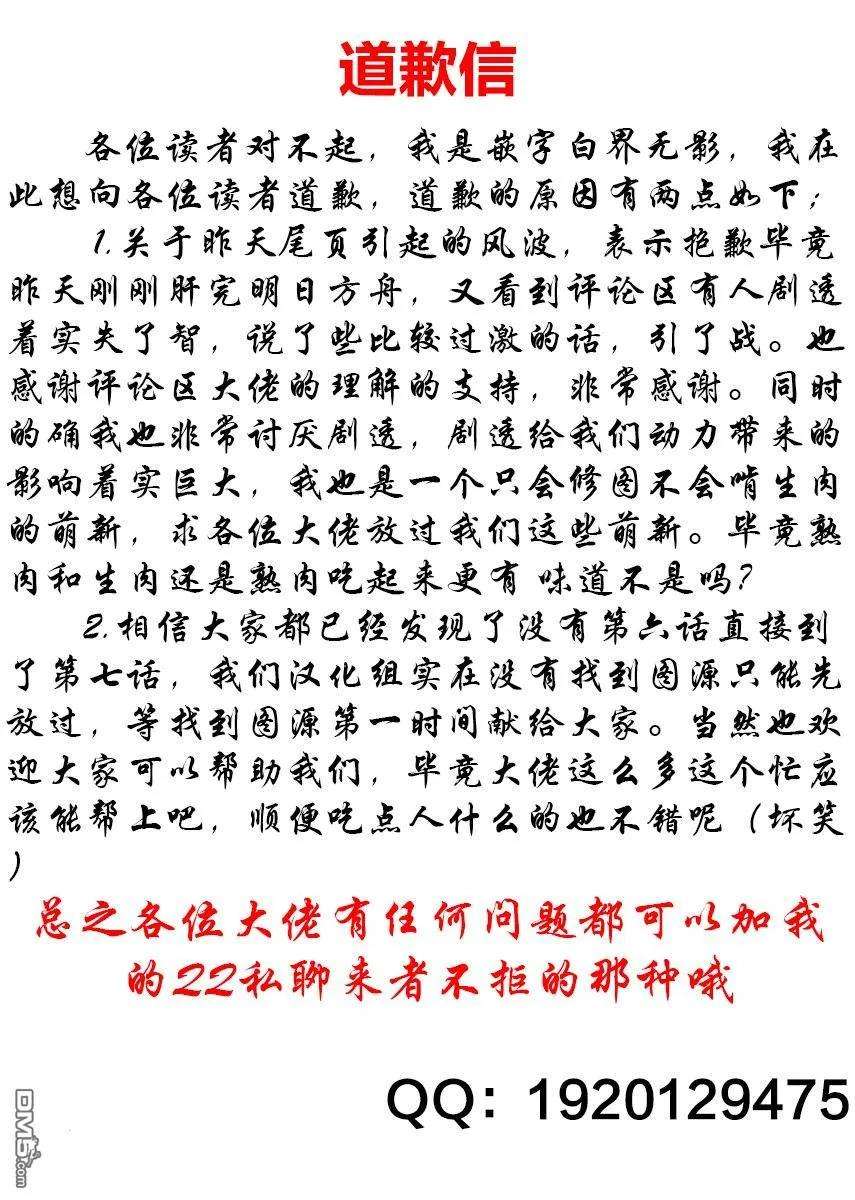 道歉信
各位读者对不起，我是嵌字白界无影，我在
此想向各位读者道歉，道歉的原因有两点如下；
1.关于昨天尾页引起的风波，表示抱歉毕竟
昨天刚刚肝完明日方舟，又看到评论区有人剧透
着实失了智，说了些比较过激的话，引了战。也
感谢评论区大佬的理解的支持，非常感谢。同时
的确我也非常讨厌剧透，剧透给我们动力带来的
影响着实巨大，我也是一个只会修图不会啃生肉
的萌新，求各位大佬放过我们这些萌新。毕竟熟
肉和生肉还是熟肉吃起来更有 味道不是吗？
2.相信大家都已经发现了没有第六话直接到
了第七话，我们汉化组实在没有找到图源只能先
放过，等找到图源第一时间献给大家。当然也欢
迎大家可以帮助我们，毕竟大佬这么多这个忙应
该能帮上吧，顺便吃点人什么的也不错呢（坏笑
）
总之各位大佬有任何问题都可以加我
的22私聊来者不拒的那种哦
QQ：1920129475
DM5.com